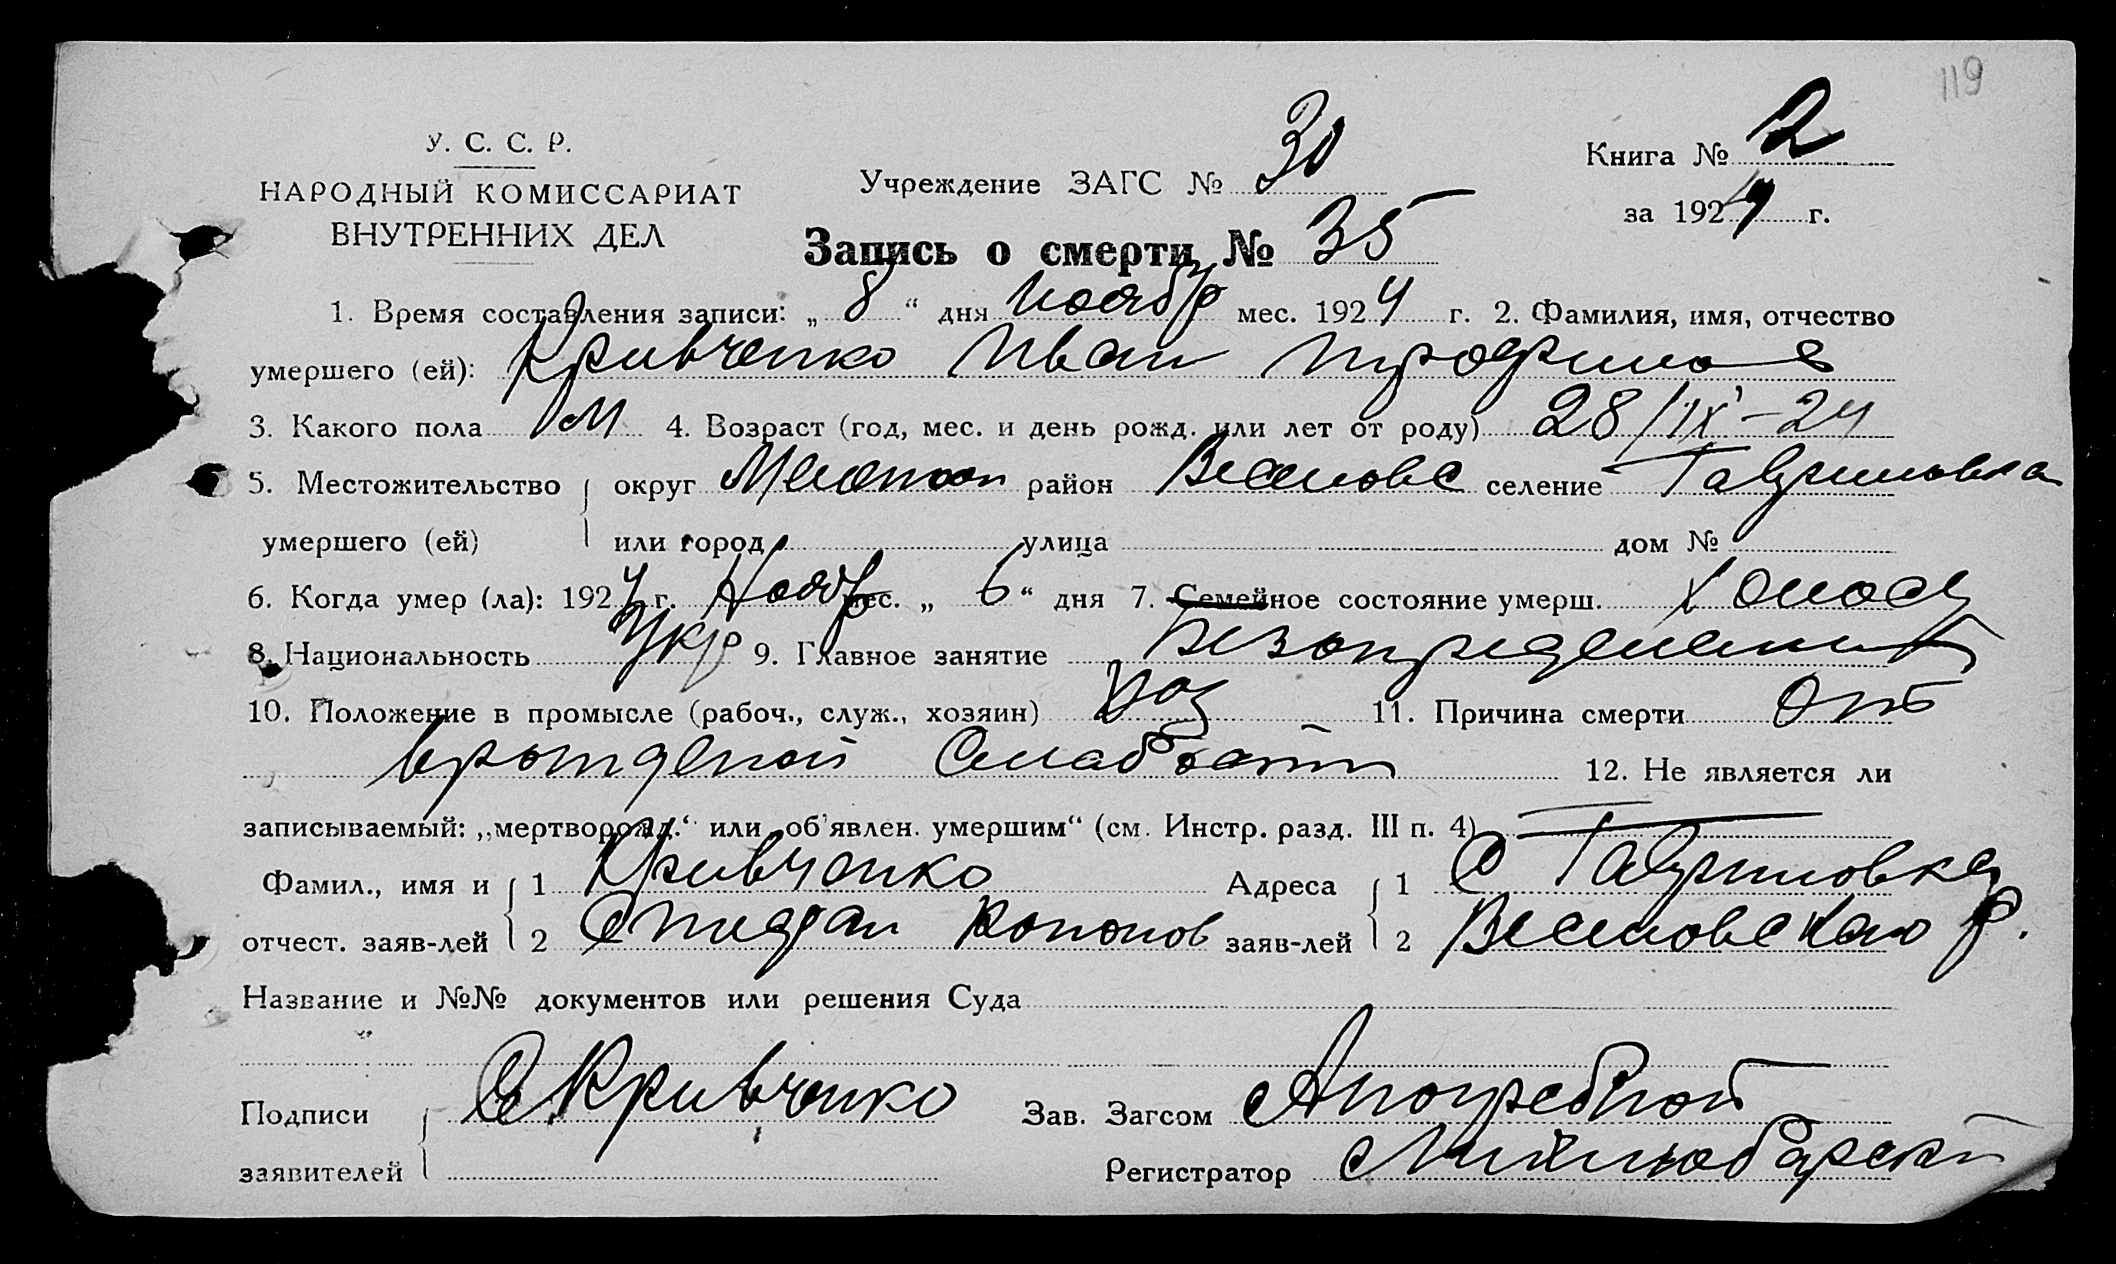 119
У. С. С. Р.
НАРОДНЫЙ КОМИССАРИАТ
ВНУТРЕННИХ ДЕЛ
Учреждение ЗАГС № 30
Книга № 2
за 1924 г.
Запись о смерти № 35
1. Время составления записи: „ 8 “ дня Ноябр мес. 1924 г. 2. Фамилия, имя, отчество
умершего (ей): Кривченко Иван Трофимов
3. Какого пола М 4. Возраст (год, мес. и день рожд. или лет от роду) 28/IX - 24
5. Местожительство округ район Веселовс селение Гавриловка
умершего (ей) или город улица дом №
6. Когда умер (ла): 1924 г. Ноябр мес. „ 6 “ дня 7. Семейное состояние умерш. Холост
8. Национальность Укр 9. Главное занятие
10. Положение в промысле (рабоч., служ., хозяин) Хоз 11. Причина смерти От
врожденой Слабости 12. Не является ли
записываемый: „мертворожд.“ или „об'явлен. умершим“ (см. Инстр. разд. III п. 4)
Фамил., имя и 1 Кривченко Адреса 1 С Гавриловка
отчест. заяв-лей 2 Стефан Кононов заяв-лей 2 Веселовского р.
Название и №№ документов или решения Суда
Подписи С Кривченко Зав. Загсом
заявителей Регистратор